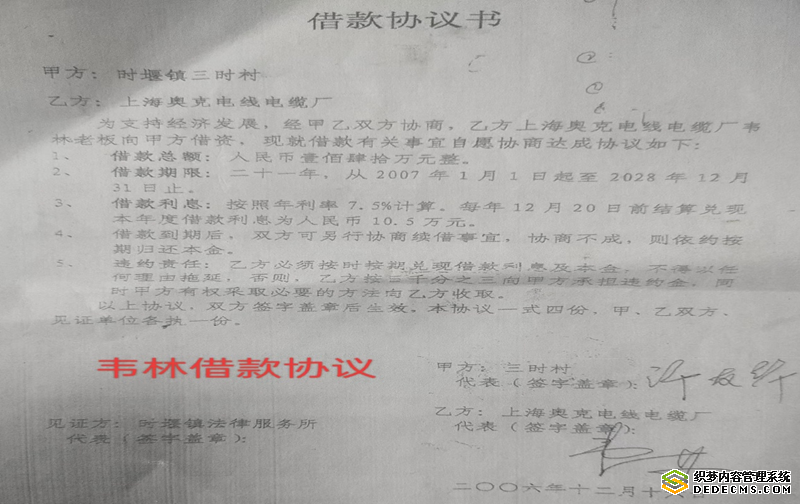 借款协议书
甲方：时堰镇三时村
乙方：上海奥克电线电缆厂
为支持经济发展，经甲乙双方协商，乙方上海奥克电线电缆厂韦
林老板向甲方借资，现就借款有关事宜自愿协商达成协议如下：
1、 借款总额：人民币壹佰肆拾万元整。
2、 借款期限：二十一年，从 2007 年 1 月 1 日起至 2028 年 12 月
31 日止。
3、 借款利息：按照年利率 7.5%计算。每年 12 月 20 日前结算兑现
本年度借款利息为人民币 10.5 万元。
4、 借款到期后，双方可另行协商续借事宜，协商不成，则依约按
期归还本金。
5、 违约责任：乙方必须按时按期兑现借款利息及本金，不得以任
何理由拖延，否则，乙方按三千分之三向甲方承担违约金，同
时甲方有权采取必要的方法向乙方收取。
以上协议，双方签字盖章后生效。本协议一式四份，甲、乙双方、
见证单位各执一份。
韦林借款协议
甲方：三时村
代表（签字盖章）：
乙方：上海奥克电线电缆厂
代表（签字盖章）：
见证方：时堰镇法律服务所
代表（签字盖章）：
二〇〇六年十二月十
织梦内容管理系统
DEDECMS.COM